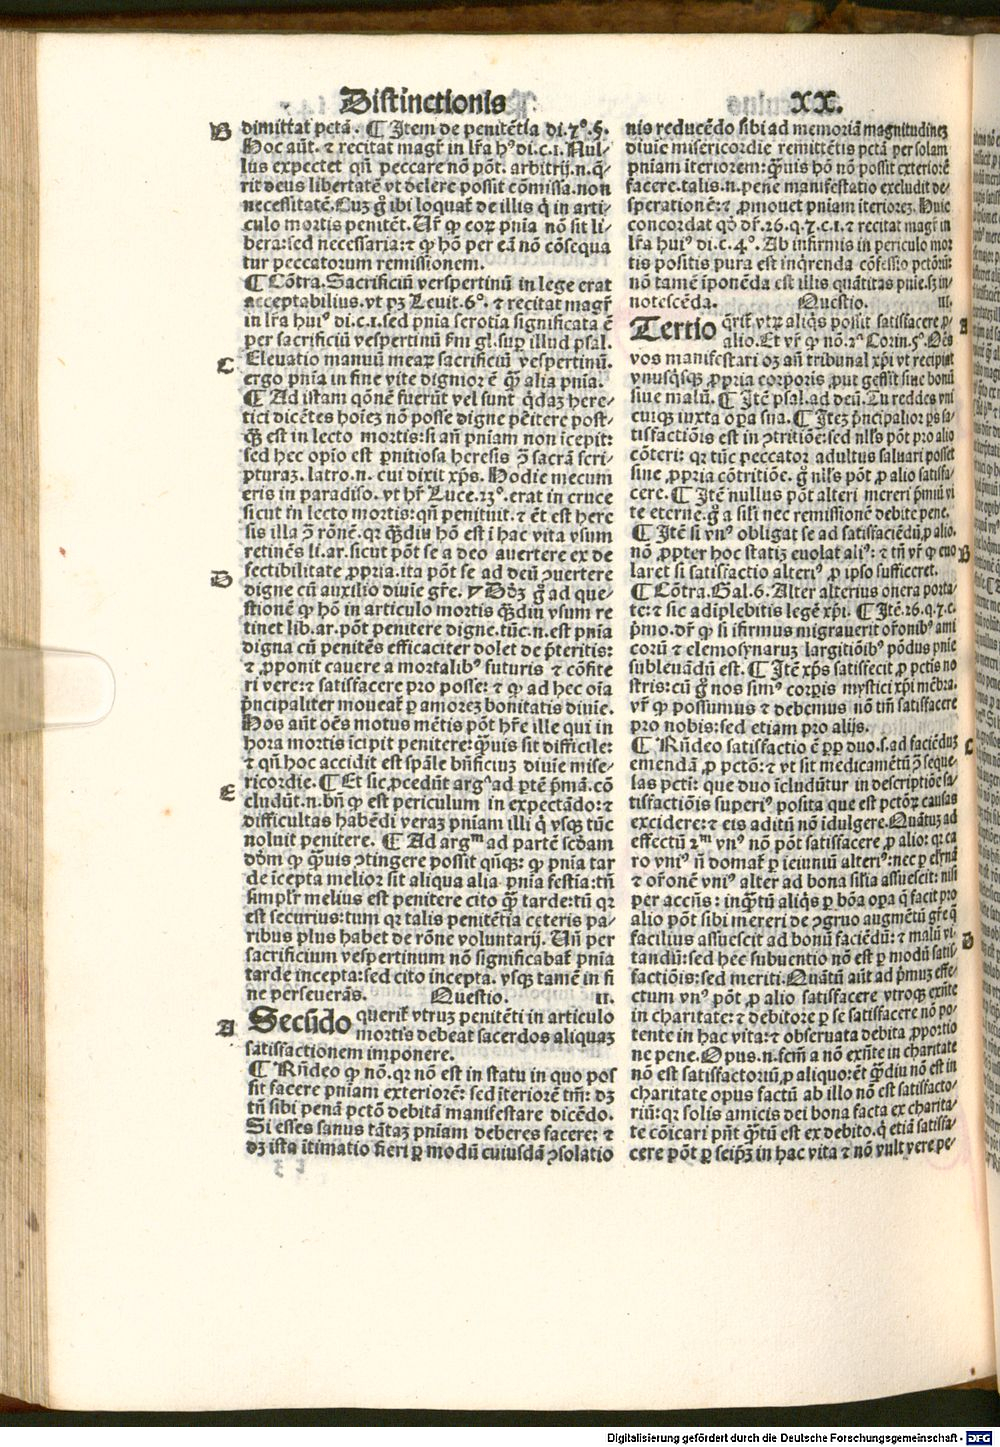 Distinctionis XX.
B
dimittat pctā. ¶ Item de penitētia di.7º.§.
Hoc aūt. ⁊ recitat magr̄ in lr̄a hꝰ di.c.1. Nul-
lus expectet qn̄ peccare nō pōt. arbitrij.n.q̄-
rit deus libertatē vt delere possit cōmissa.non
necessitatē. Cuz g̊ ibi loquat̄ de illis q̇ in arti-
culo mortis penitēt. Ur̄ ꝙ eoꝝ pnīa nō sit li-
bera: sed necessaria: ⁊ ꝙ hō per eā nō cōsequa
tur peccatorum remissionem.
¶ Cōtra. Sacrificiū verspertinū in lege erat
acceptabilius. vt pꝫ Leuit.6º. ⁊ recitat magr̄
in lr̄a huiꝰ di.c.1. sed pnīa serotia significata ē
per sacrificiū vespertinū s̄m gl. sup illud psal.
C
Eleuatio manuū meaꝝ sacrificiū vespertinū.
ergo pnīa in fine vite dignior ē q̄ꝫ alia pnīa.
¶ Ad istam qōnē fuerūt vel sunt q̇daꝫ here-
tici dicētes hoīeꝫ nō posse digne pēitere post-
q̄ꝫ est in lecto mortis: si an̄ pniam non īcepit:
sed hec opīo est p̱nitiosa heresis ꝯ̄ sacrā scri-
pturaꝫ. latro.n. cui dixit xp̄s. Hodie mecum
eris in paradiso. vt hr̄ Luce.23º. erat in cruce
sicut in lecto mortis: qn̄ penituit. ⁊ ēt est here
sis illa ꝯ̄ rōnē. qꝛ q̄ꝫdiu hō est ī hac vita vsum
retinēs li.ar. sicut pōt se a deo auertere ex de
D
fectibilitate ꝓpria. ita pōt se ad deū ꝯuertere
digne cū auxilio diuīe gr̄e. ℣ Dōꝫ g̊ ad que-
stionē ꝙ hō in articulo mortis q̄ꝫdiu vsum re
tinet lib.ar. pōt penitere digne. tūc.n. est pnīa
digna cū penitēs efficaciter dolet de p̄teritis:
⁊ ꝓponit cauere a mortalibꝰ futuris ⁊ cōfite
ri vere: ⁊ satisfacere pro posse: ⁊ ꝙ ad hec oīa
p̄ncipaliter moueat̄ ꝑ amoreꝫ bonitatis diuīe.
Hos aūt oēs motus mētis pōt hr̄e ille qui in
hora mortis īcipit penitere: q̄ꝫuis sit difficile:
⁊ qn̄ hoc accidit est spāle bn̄ficiuꝫ diuīe mise-
E
ricordie. ¶ Et sic ꝓcedūt argᵃ ad ꝑtē p̄mā. cō
cludūt.n. bn̄ ꝙ est periculum in expectādo: ⁊
difficultas habēdi veraꝫ pnīam illi q̇ vsqꝫ tūc
noluit penitere. ¶ Ad argᵐ ad partē scd̄am
dōm ꝙ q̄ꝫuis ꝯtingere possit qn̄qꝫ: ꝙ pnīa tar
de īcepta melior sit aliqua alia pnīa festīa: tn̄
simplr̄ melius est penitere cito q̄ꝫ tarde: tū qꝛ
est securius: tum qꝛ talis penitētia ceteris pa-
ribus plus habet de rōne voluntarij. Un̄ per
sacrificium vespertinum nō significabat̄ pnīa
tarde incepta: sed cito incepta. vsqꝫ tamē in fi
ne perseuerās. Questio. II.
A
Secūdo querit̄ vtruꝫ penitēti in articulo
mortis debeat sacerdos aliquaꝫ
satisfactionem imponere.
¶ Rn̄deo ꝙ nō. qꝛ nō est in statu in quo pos
sit facere pniam exteriorē: sed īteriorē tm̄: dꝫ
tn̄ sibi penā pctō debitā manifestare dicēdo.
Si esses sanus tātaꝫ pniam deberes facere: ⁊
dꝫ ista ītimatio fieri ꝑ modū cuiusdā ꝯsolatio
nis reducēdo sibi ad memoriā magnitudineꝫ
diuīe misericordie remittētis pctā per solam
pniam īteriorem: q̄ꝫuis hō nō possit exteriorē
facere. talis.n. pene manifestatio excludit de-
sperationē: ⁊ ꝓmouet pniam īterioreꝫ. Huic
concordat qd̄ dr̄.26.q.7.c.1. ⁊ recitat magr̄ in
lr̄a huiꝰ di.c.4º. Ab infirmis in periculo mor
tis positis pura est inq̇renda cōfessio pctōꝝ:
nō tamē īponēda est illis quātitas pnīe. sꝫ in-
notescēda. Questio. III.
A
Tertio q̄rit̄ vtꝝ aliq̇s possit satisfacere ꝓ
alio. Et vr̄ ꝙ nō. 2ª Corin.5º. Oēs
vos manifestari oꝫ an̄ tribunal xp̄i vt recipiat
vnusq̇sqꝫ ꝓpria corporis ꝓut gessit siue bonū
siue malū. ¶ Itē psal. ad deū. Tu reddes vni
cuiqꝫ iuxta opa sua. ¶ Iteꝫ p̄ncipalior ꝑs sa-
tisfactiōis est in ꝯtritiōe: sed nllꝰs pōt pro alio
cōteri: qꝛ tūc peccator adultus saluari posset
sine ꝓpria cōtritiōe. g̊ nllꝰs pōt ꝓ alio satisfa-
cere. ¶ Itē nullus pōt alteri mereri p̄miū vi
te eterne. g̊ a sil̄i nec remissionē debite pene.
¶ Itē si vnꝰ obligat se ad satisfaciēdū ꝓ alio.
B
nō ꝓpter hoc statiꝫ euolat aliꝰ: ⁊ tn̄ vr̄ ꝙ euo
laret si satisfactio alteriꝰ ꝓ ipso sufficeret.
¶ Cōtra. Gal.6. Alter alterius onera porta-
te: ⁊ sic adīplebitis legē xp̄i. ¶ Itē.26.q.7.c.
p̄mo. dr̄ ꝙ si īfirmus migrauerit or̄onibꝰ ami
corū ⁊ elemosynaruꝫ largitiōibꝰ pōdus pnīe
subleuādū est. ¶ Itē xp̄s satisfecit ꝓ pctis no
stris: cū g̊ nos simꝰ corpis mystici xp̄i mēbra.
vr̄ ꝙ possumus ⁊ debemus nō tm̄ satisfacere
pro nobis: sed etiam pro alijs.
C
¶ Rn̄deo satisfactio ē ꝓp duo. s. ad faciēduꝫ
emendā ꝓ pctō: ⁊ vt sit medicamētū ꝯ̄ seque-
las pcti: que duo īcludūtur in descriptiōe sa-
tisfactiōis superiꝰ posita que est pctōꝝ causas
excidere: ⁊ eis aditū nō īdulgere. Quātuꝫ ad
effectū 2ᵐ vnꝰ nō pōt satisfacere ꝓ alio: qꝛ ca
ro vniꝰ nō domat̄ ꝑ ieiuniū alteriꝰ: nec ꝑ elynā
⁊ or̄onē vniꝰ alter ad bona sil̄ia assuescit: nisi
per accn̄s: inq̄ꝫtū aliq̇s ꝑ bōa opa q̄ facit pro
alio pōt sibi mereri de ꝯgruo augmētū gr̄e q̄
D
facilius assuescit ad bonū faciēdū: ⁊ malū vi-
tandū: sed hec subuentio nō est ꝑ modū satis-
factiōis: sed meriti. Quātū aūt ad p̄muꝫ effe-
ctum vnꝰ pōt ꝓ alio satisfacere vtroqꝫ exn̄te
in charitate: ⁊ debitore ꝑ se satisfacere nō po-
tente in hac vita: ⁊ obseruata debita ꝓportio
ne pene. Opus.n. fcm̄ a nō exn̄te in charitate
nō est satisfactoriū ꝓ aliquo: ēt q̄ꝫdiu nō est in
charitate opus factū ab illo nō est satisfacto-
riū: qꝛ solis amicis dei bona facta ex charita-
te cōicari pn̄t q̄ꝫtū est ex debito. q̇ etiā satisfa-
cere pōt ꝑ seipꝫ in hac vita ⁊ nō vult vere pe-
Digitalisierung gefördert durch die Deutsche Forschungsgemeinschaft - DFG